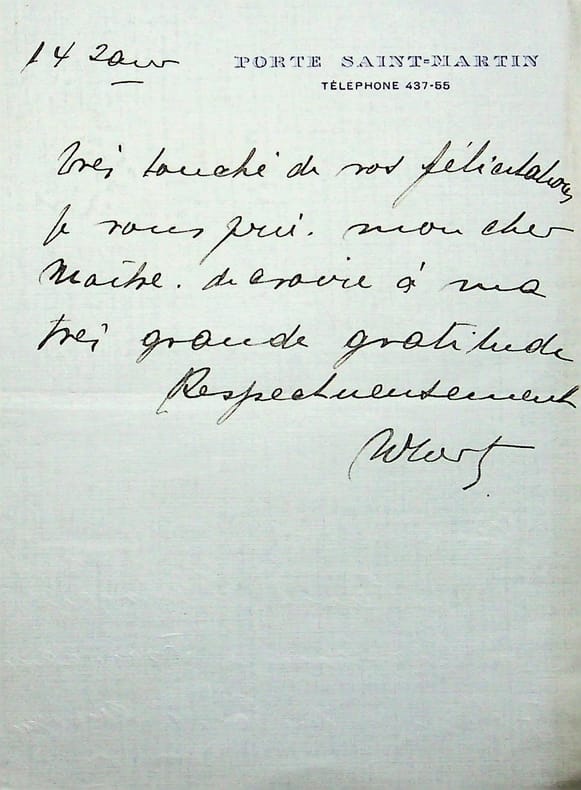 14
PORTE SAINT-MARTIN
TÉLÉPHONE 437-55
très touché de vos félicitations
je vous prie. mon cher
Maître. de croire à ma
très grande gratitude
Respectueusement